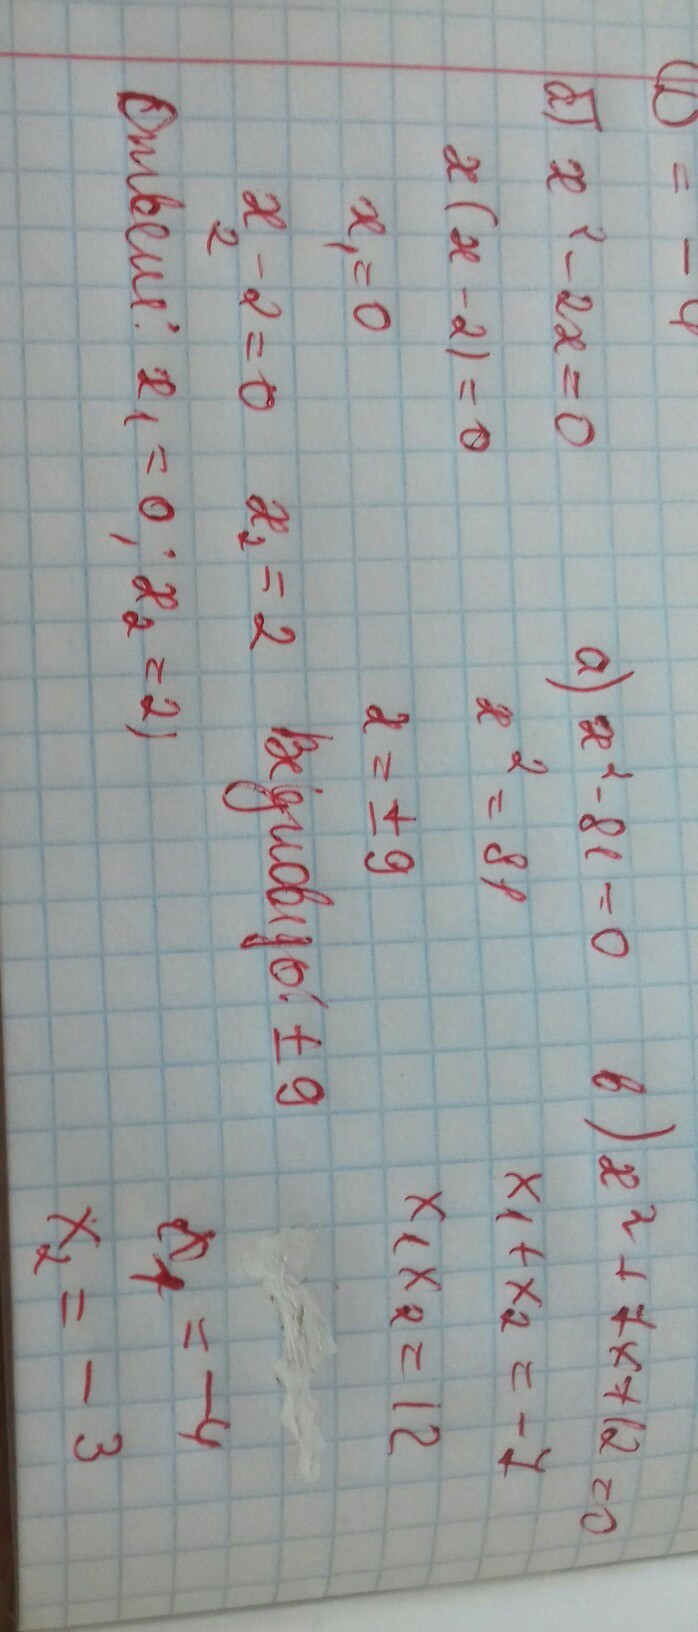 D = -4
б) x² - 2x = 0
x (x - 2) = 0
x₁ = 0
x₂ - 2 = 0 x₂ = 2
Ответ: x₁ = 0; x₂ = 2)
а) x² - 81 = 0
x² = 81
x = ±9
Відповідь: ±9
в) x² + 7x + 12 = 0
x₁ + x₂ = -7
x₁ x₂ = 12
x₁ = -4
x₂ = -3